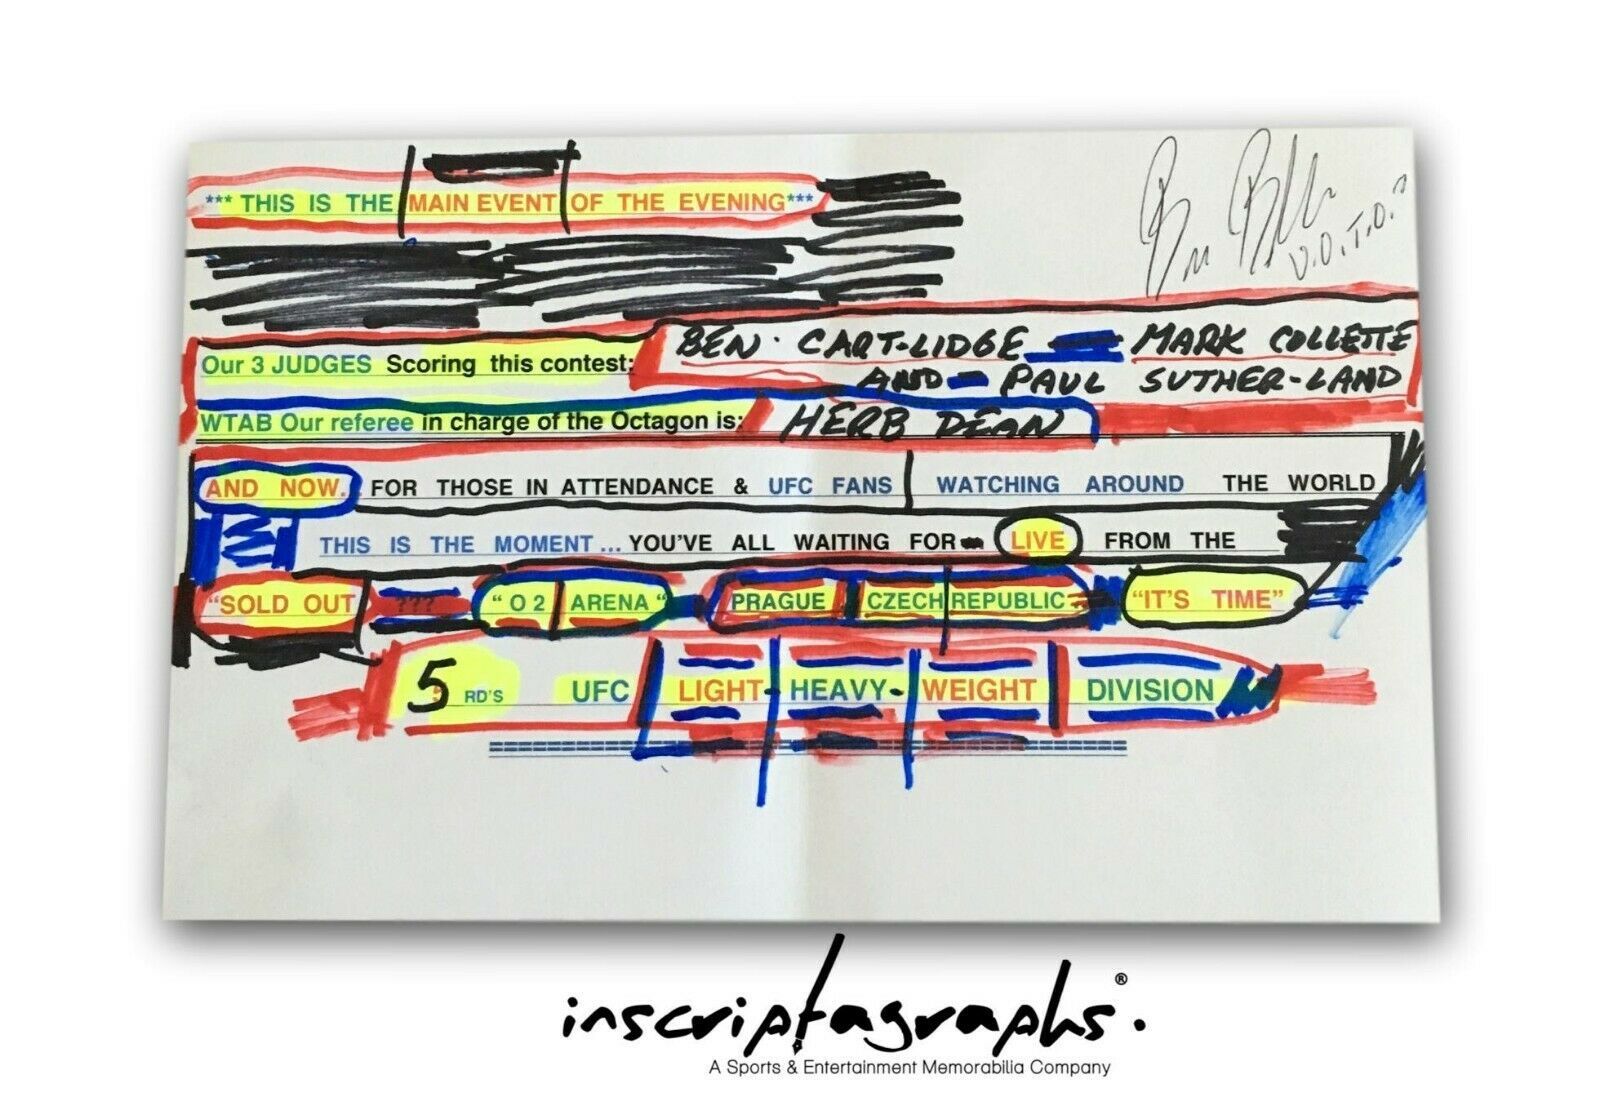 *** THIS IS THE MAIN EVENT OF THE EVENING***
V.O.T.O.
Our 3 JUDGES Scoring this contest: BEN · CART-LIDGE - MARK COLLETTE
AND - PAUL SUTHER-LAND
WTAB Our referee in charge of the Octagon is: HERB DEAN
AND NOW... FOR THOSE IN ATTENDANCE & UFC FANS WATCHING AROUND THE WORLD
THIS IS THE MOMENT... YOU'VE ALL WAITING FOR - LIVE FROM THE
"SOLD OUT ??? "O2 ARENA" PRAGUE CZECH REPUBLIC "IT'S TIME"
5 RD'S UFC LIGHT-HEAVY-WEIGHT DIVISION
inscriptagraphs®.
A Sports & Entertainment Memorabilia Company